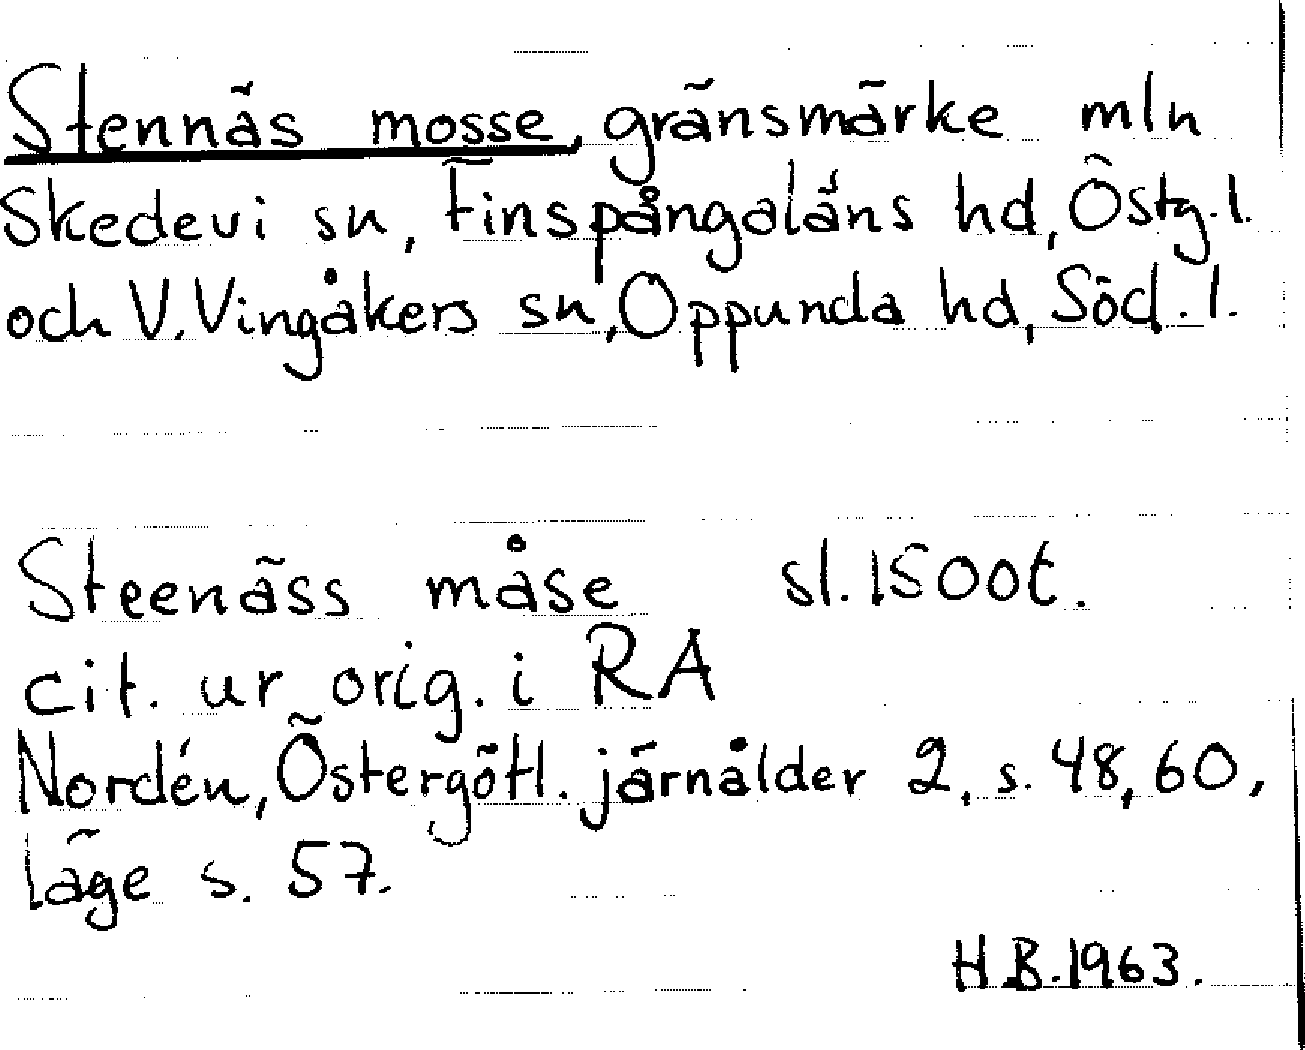 Stennäs mosse, gränsmärke mln
Skedevi sn, Finspångaläns hd, Östg.l.
och V. Vingåkers sn, Oppunda hd, Söd.l.
Steenäss måse sl. 1500t.
cit. ur orig. i RA
Nordén, Östergötl. järnålder 2, s. 48, 60,
läge s. 57.
H.B. 1963.